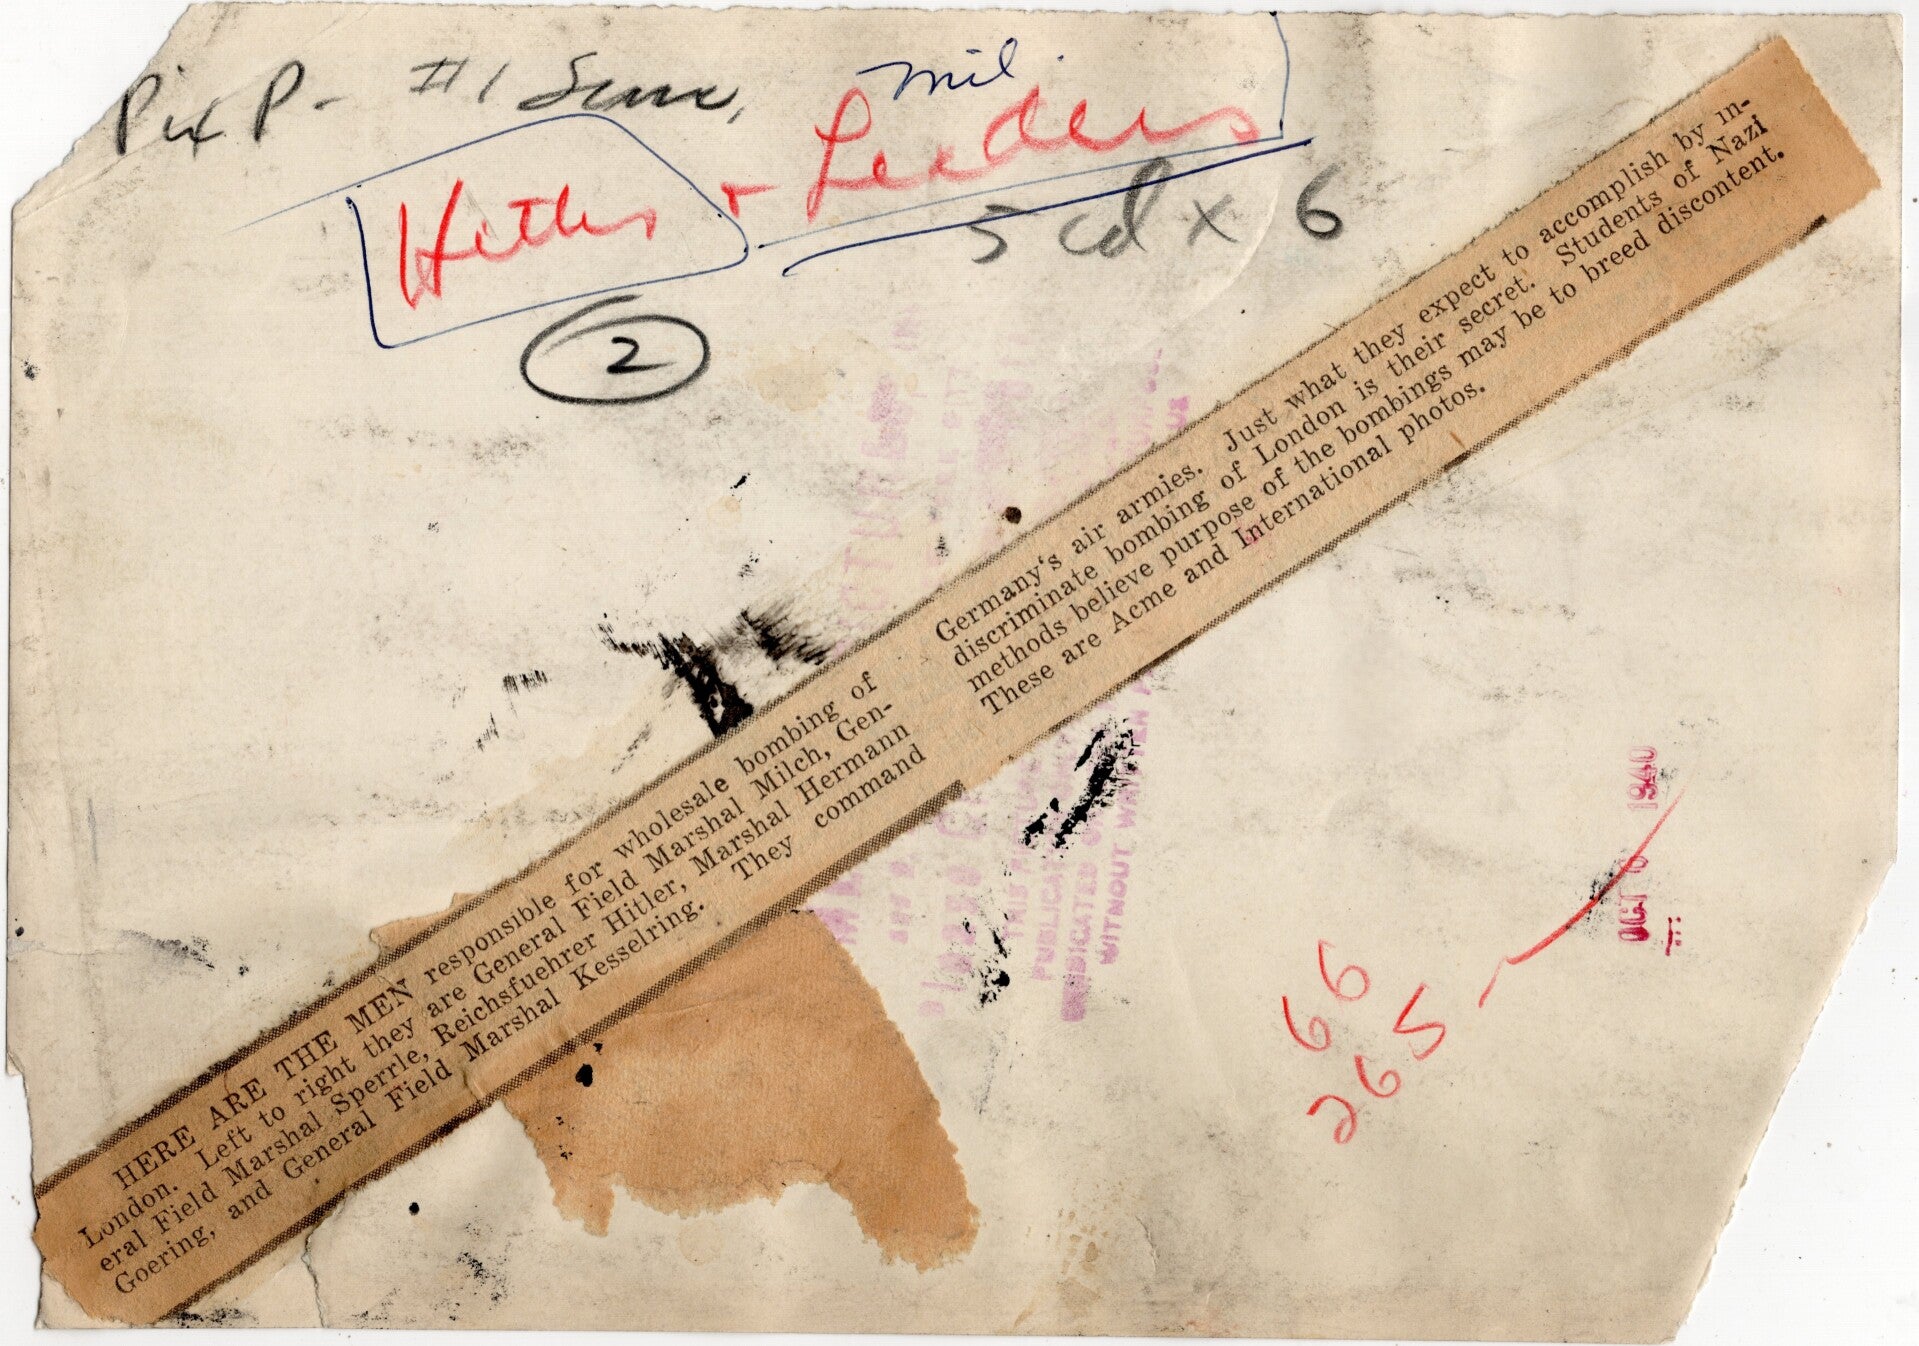 Pix P- #1 
mil.
Hitler + Leaders
5 cd x 6
2
HERE ARE THE MEN responsible for wholesale bombing of
London. Left to right they are General Field Marshal Milch, Gen-
eral Field Marshal Sperrle, Reichsfuehrer Hitler, Marshal Hermann
Goering, and General Field Marshal Kesselring. They command
Germany's air armies. Just what they expect to accomplish by in-
discriminate bombing of London is their secret. Students of Nazi
methods believe purpose of the bombings may be to breed discontent.
These are Acme and International photos.
THIS
PUBLICAT
SYNDICATED
WITHOUT WRITTEN
OCT 6 1940
66
265